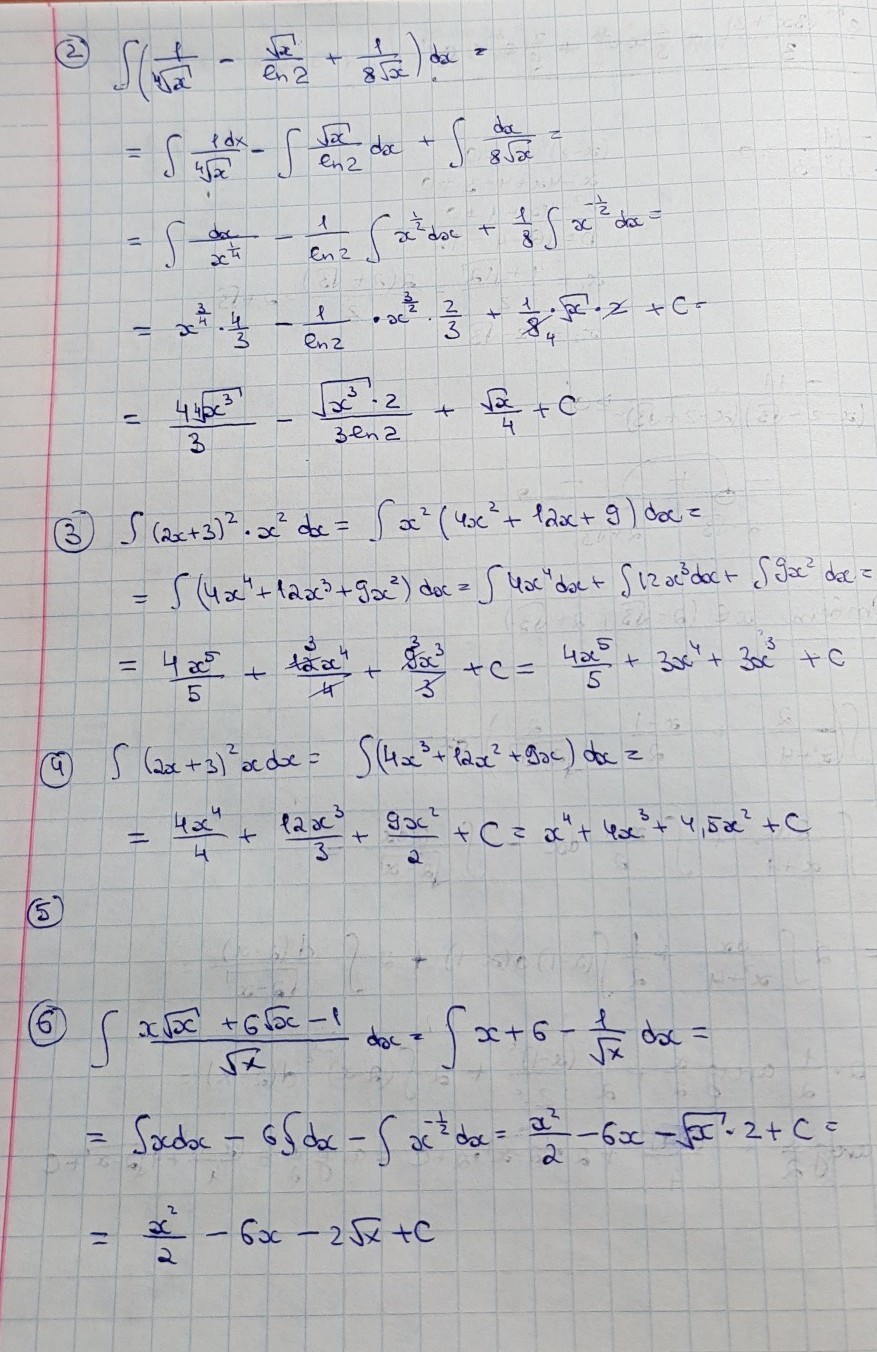 ② ∫(1/⁴√x − √x/ln2 + 1/8√x) dx =
= ∫ 1dx/⁴√x − ∫ √x/ln2 dx + ∫ dx/8√x =
= ∫ dx/x^(1/4) − 1/ln2 ∫ x^(1/2) dx + 1/8 ∫ x^(−1/2) dx =
= x^(3/4) · 4/3 − 1/ln2 · x^(3/2) · 2/3 + 1/8 4 · √x · 2 + C =
= 4⁴√x³/3 − √x³ · 2/3ln2 + √x/4 + C
③ ∫ (2x+3)² · x² dx = ∫ x² (4x² + 12x + 9) dx =
= ∫ (4x⁴ + 12x³ + 9x²) dx = ∫ 4x⁴ dx + ∫ 12x³ dx + ∫ 9x² dx =
= 4x⁵/5 + 3 12x⁴/4 + 3 9x³/3 + C = 4x⁵/5 + 3x⁴ + 3x³ + C
④ ∫ (2x+3)² x dx = ∫ (4x³ + 12x² + 9x) dx =
= 4x⁴/4 + 12x³/3 + 9x²/2 + C = x⁴ + 4x³ + 4,5x² + C
⑤
⑥ ∫ x√x + 6√x − 1/√x dx = ∫ x + 6 − 1/√x dx =
= ∫ x dx − 6 ∫ dx − ∫ x^(−1/2) dx = x²/2 − 6x − √x · 2 + C =
= x²/2 − 6x − 2√x + C